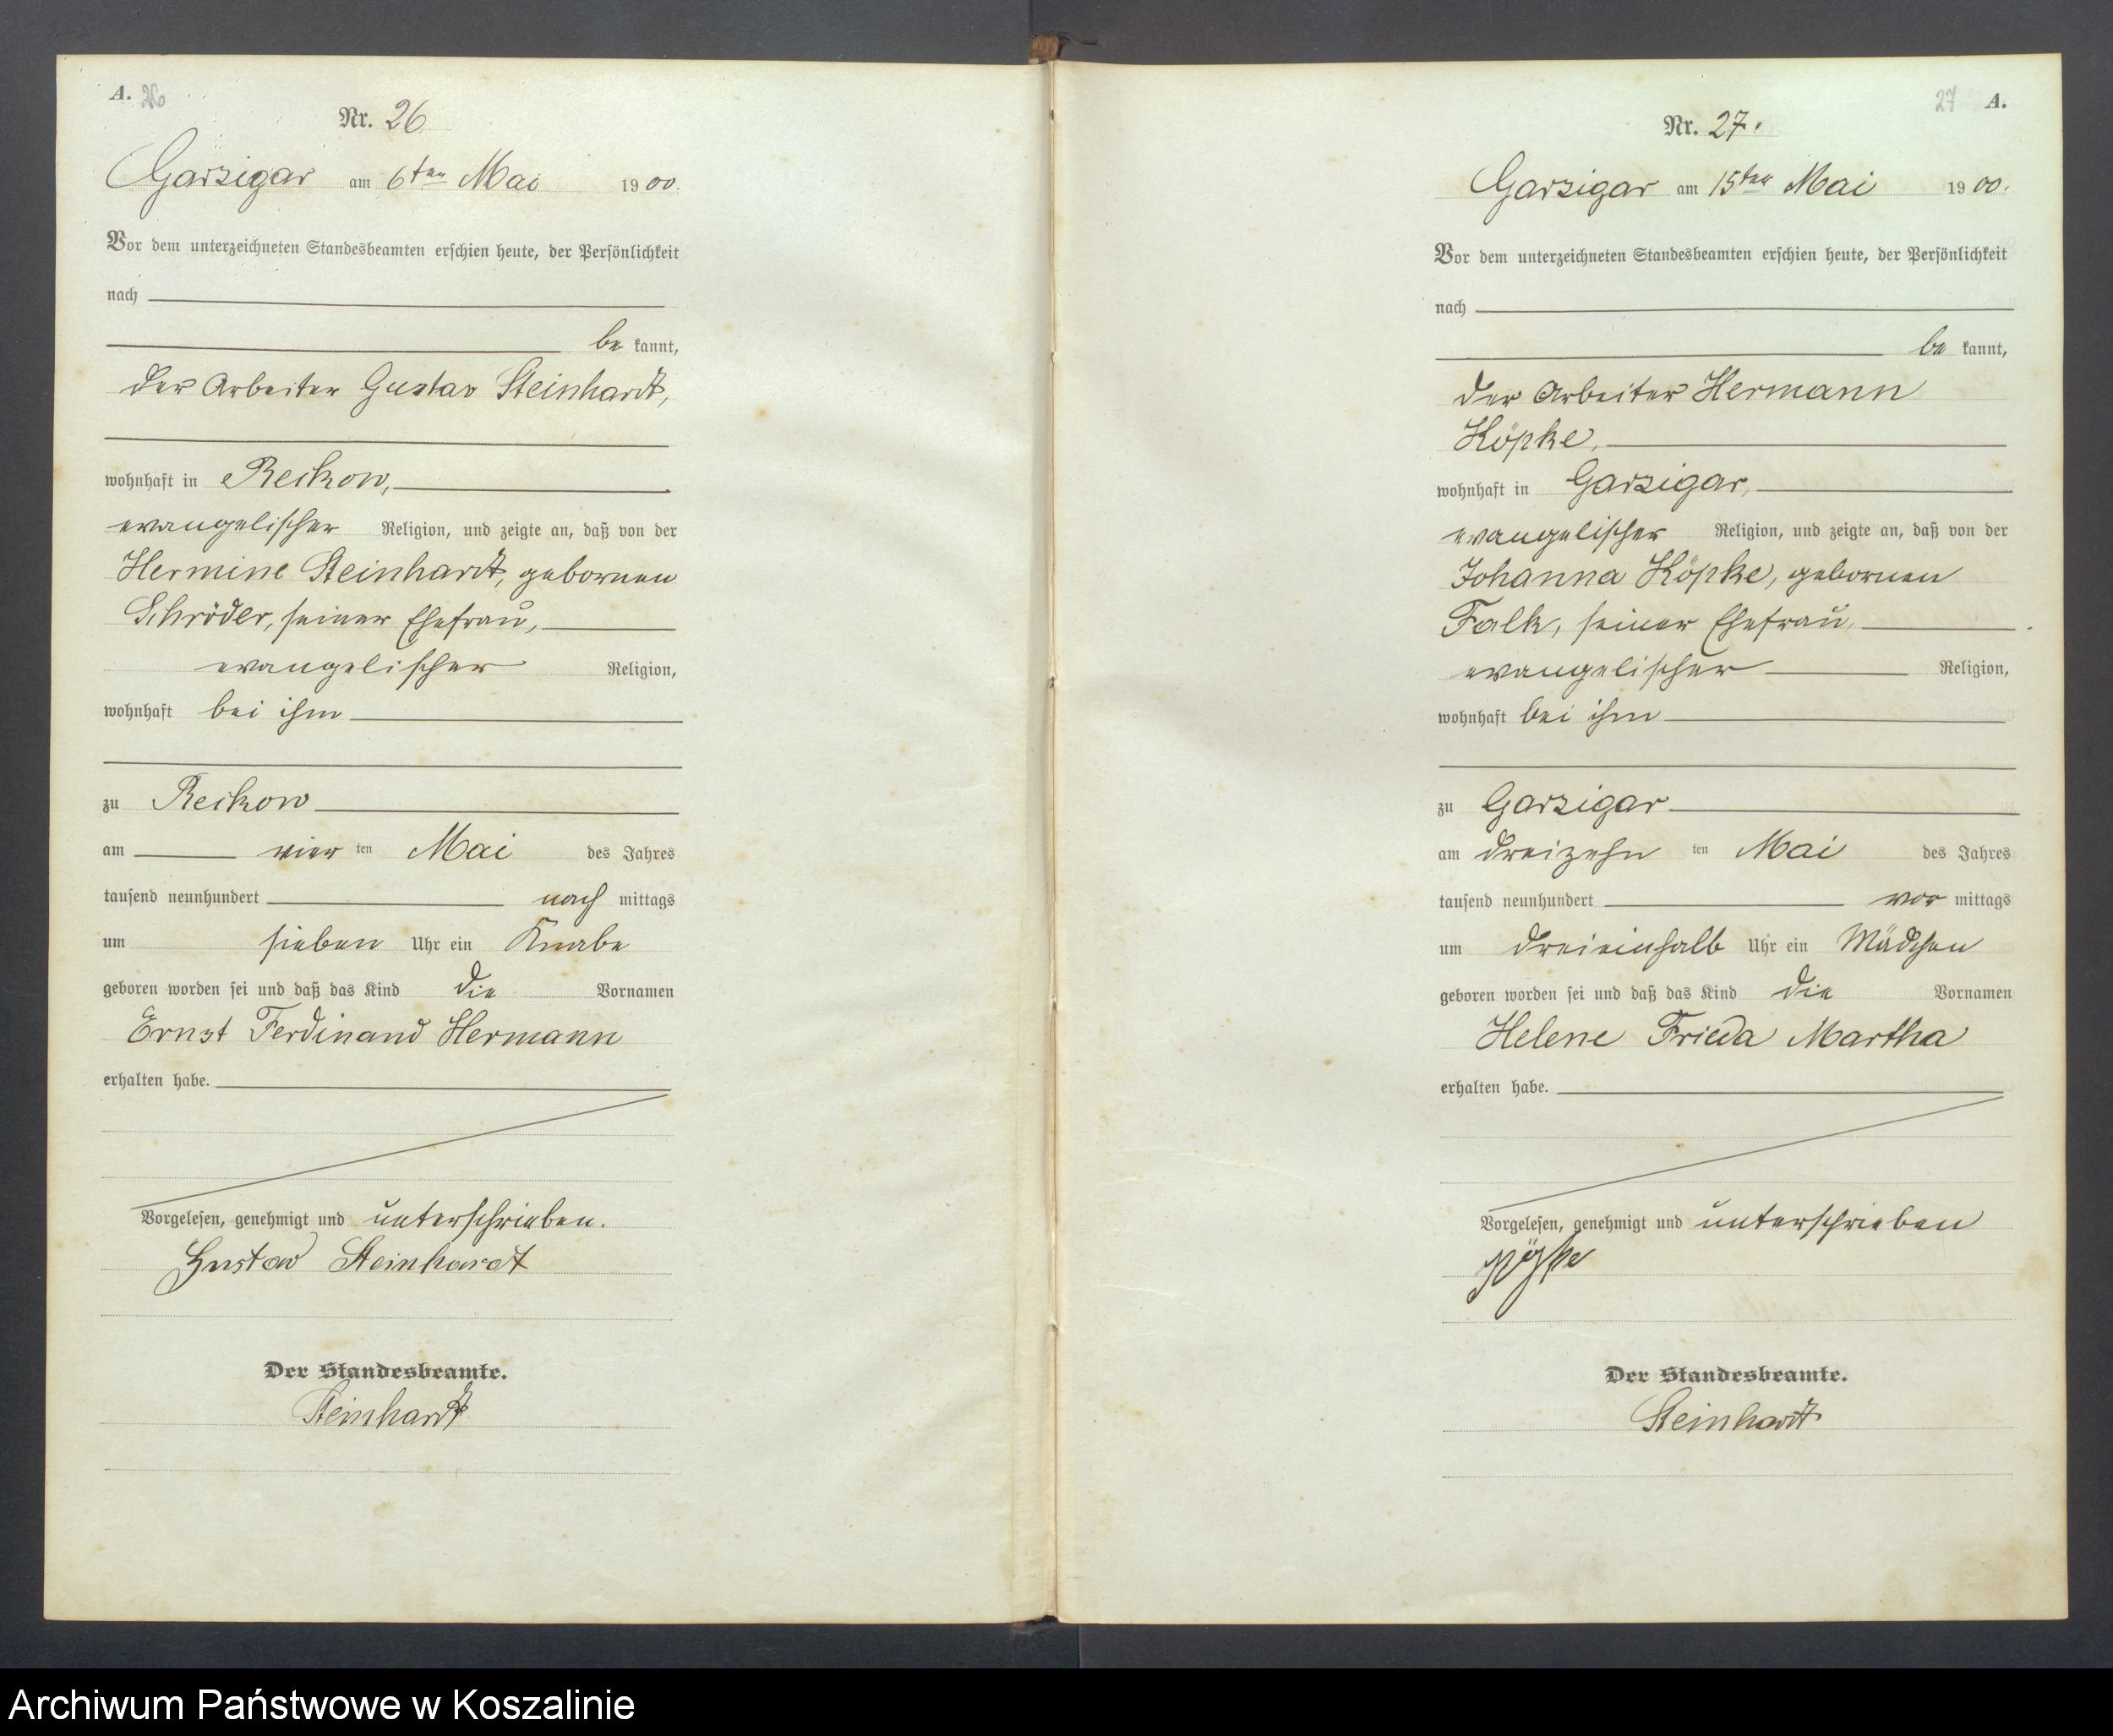 A. 26
Nr. 26
Garzigar am 6ten Mai 1900.
Vor dem unterzeichneten Standesbeamten erschien heute, der Persönlichkeit
nach
be kannt,
der Arbeiter Gustav Steinhardt,
wohnhaft in Reckow,
evangelischer Religion, und zeigte an, daß von der
Hermine Steinhardt, gebornen
Schröder, seiner Ehefrau,
evangelischer Religion,
wohnhaft bei ihm
zu Reckow
am vier ten Mai des Jahres
tausend neunhundert nach mittags
um sieben Uhr ein Knabe
geboren worden sei und daß das Kind die Vornamen
Ernst Ferdinand Hermann
erhalten habe.
Vorgelesen, genehmigt und unterschrieben.
Gustav Steinhardt
Der Standesbeamte.
Steinhardt
27 A.
Nr. 27.
Garzigar am 15ten Mai 1900.
Vor dem unterzeichneten Standesbeamten erschien heute, der Persönlichkeit
nach
be kannt,
der Arbeiter Hermann
Köpke,
wohnhaft in Garzigar,
evangelischer Religion, und zeigte an, daß von der
Johanna Köpke, gebornen
Falk, seiner Ehefrau,
evangelischer Religion,
wohnhaft bei ihm
zu Garzigar
am dreizehn ten Mai des Jahres
tausend neunhundert vor mittags
um dreieinhalb Uhr ein Mädchen
geboren worden sei und daß das Kind die Vornamen
Helene Frieda Martha
erhalten habe.
Vorgelesen, genehmigt und unterschrieben
Köpke
Der Standesbeamte.
Steinhardt
Archiwum Państwowe w Koszalinie